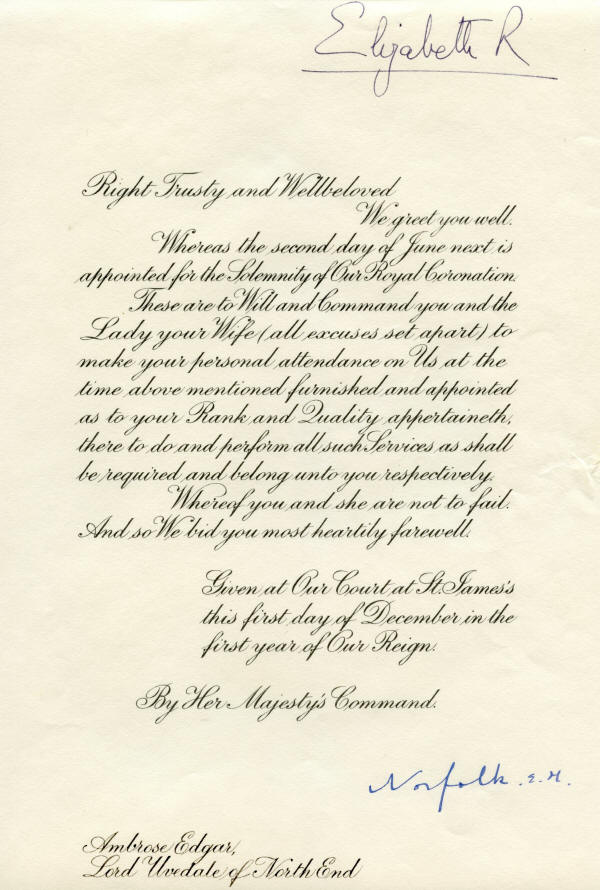 Elizabeth R
Right Trusty and Wellbeloved
We greet you well.
Whereas the second day of June next is
appointed for the Solemnity of Our Royal Coronation.
These are to Will and Command you and the
Lady your Wife (all excuses set apart) to
make your personal attendance on Us, at the
time above mentioned furnished and appointed
as to your Rank and Quality appertaineth,
there to do and perform all such Services as shall
be required and belong unto you respectively.
Whereof you and she are not to fail.
And so We bid you most heartily farewell.
Given at Our Court at St. James's
this first day of December in the
first year of Our Reign.
By Her Majesty's Command.
Norfolk. E.M.
Ambrose Edgar,
Lord Uvedale of North End